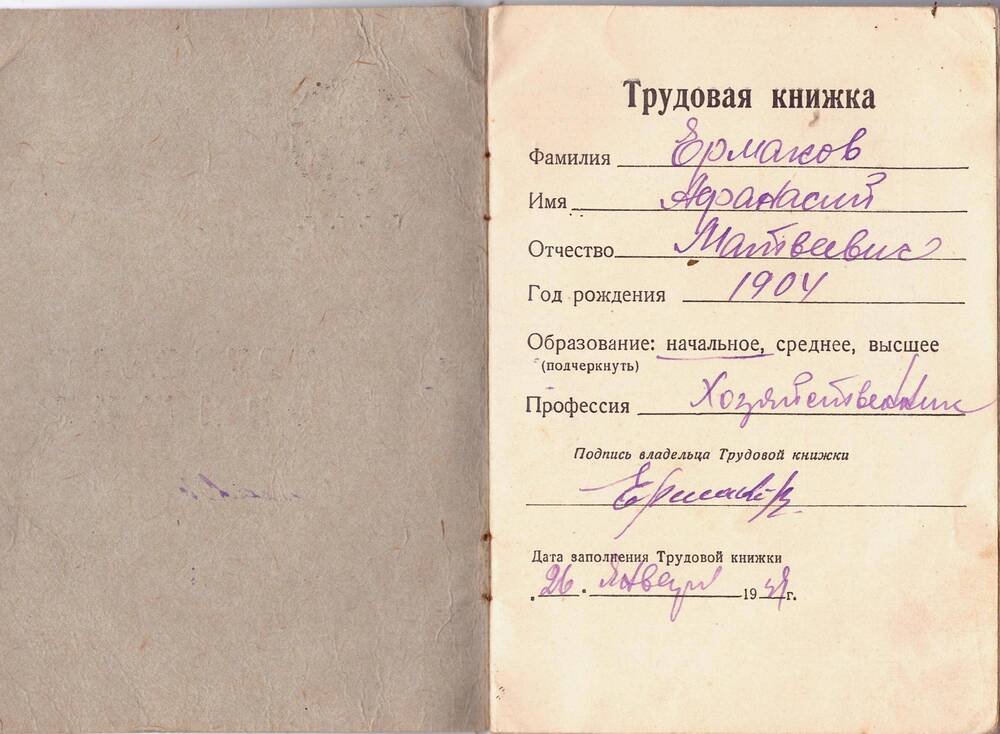 Трудовая книжка
Фамилия Ермаков
Имя Афанасий
Отчество Матвеевич
Год рождения 1904
Образование: начальное, среднее, высшее
(подчеркнуть)
Профессия Хозяйственник
Подпись владельца Трудовой книжки
Ермаков
Дата заполнения Трудовой книжки
26. Января 19 г.